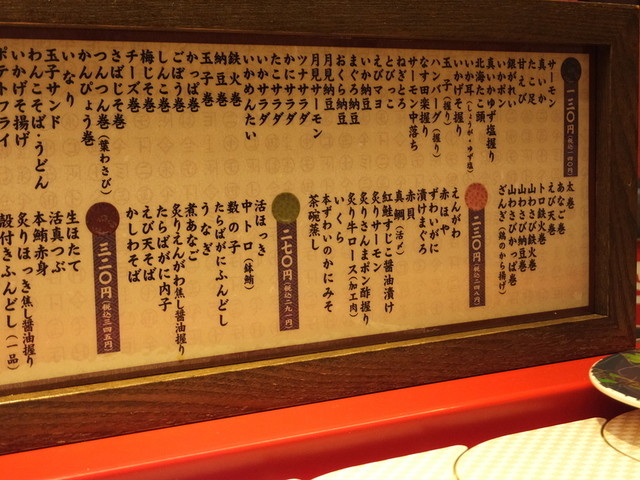 一三〇円(税込一四〇円)
サーモン
真いか
たこ
甘えび
銀がれい
いかポン
真いかゆず塩握り
北海たこ頭
いか耳(しょうが・ゆず塩)
いかげそ握り
玉子(握り)
ハンバーグ(握り)
なす田楽握り
サーモン中落ち
ねぎとろ
とびっこ
えびマヨ
いか納豆
まぐろ納豆
おくら納豆
月見納豆
月見サーモン
ツナサラダ
かにサラダ
たこサラダ
いかサラダ
いかめんたい
鉄火巻
納豆巻
玉子巻
かっぱ巻
ごぼう巻
しんこ巻
チーズ巻
梅じそ巻
さばじそ巻
つんつん巻(葉わさび)
かんぴょう巻
いなり
玉子サンド
わんこそば・うどん
いかげそ揚げ
ポテトフライ
太巻
あなご巻
えび天巻
トロ鉄火巻
山わさび鉄火巻
山わさび納豆巻
山わさびかっぱ巻
ざんぎ(鶏のから揚げ)
二三〇円(税込二四八円)
えんがわ
赤ほや
ずわいがに
漬けまぐろ
赤貝
真鯛(活〆)
紅鮭すじこ醤油漬け
炙りサーモン
炙りさんまポン酢握り
炙り牛ロース(加工肉)
いくら
本ずわいのかにみそ
茶碗蒸し
二七〇円(税込二九一円)
活ほっき
中トロ(鉢鮪)
数の子
たらばがにふんどし
うなぎ
煮あなご
炙りえんがわ焦し醤油握り
たらばがに内子
えび天そば
かしわそば
三二〇円(税込三四五円)
生ほたて
活真つぶ
本鮪赤身
炙りほっき焦し醤油握り
殻付きふんどし(一品)